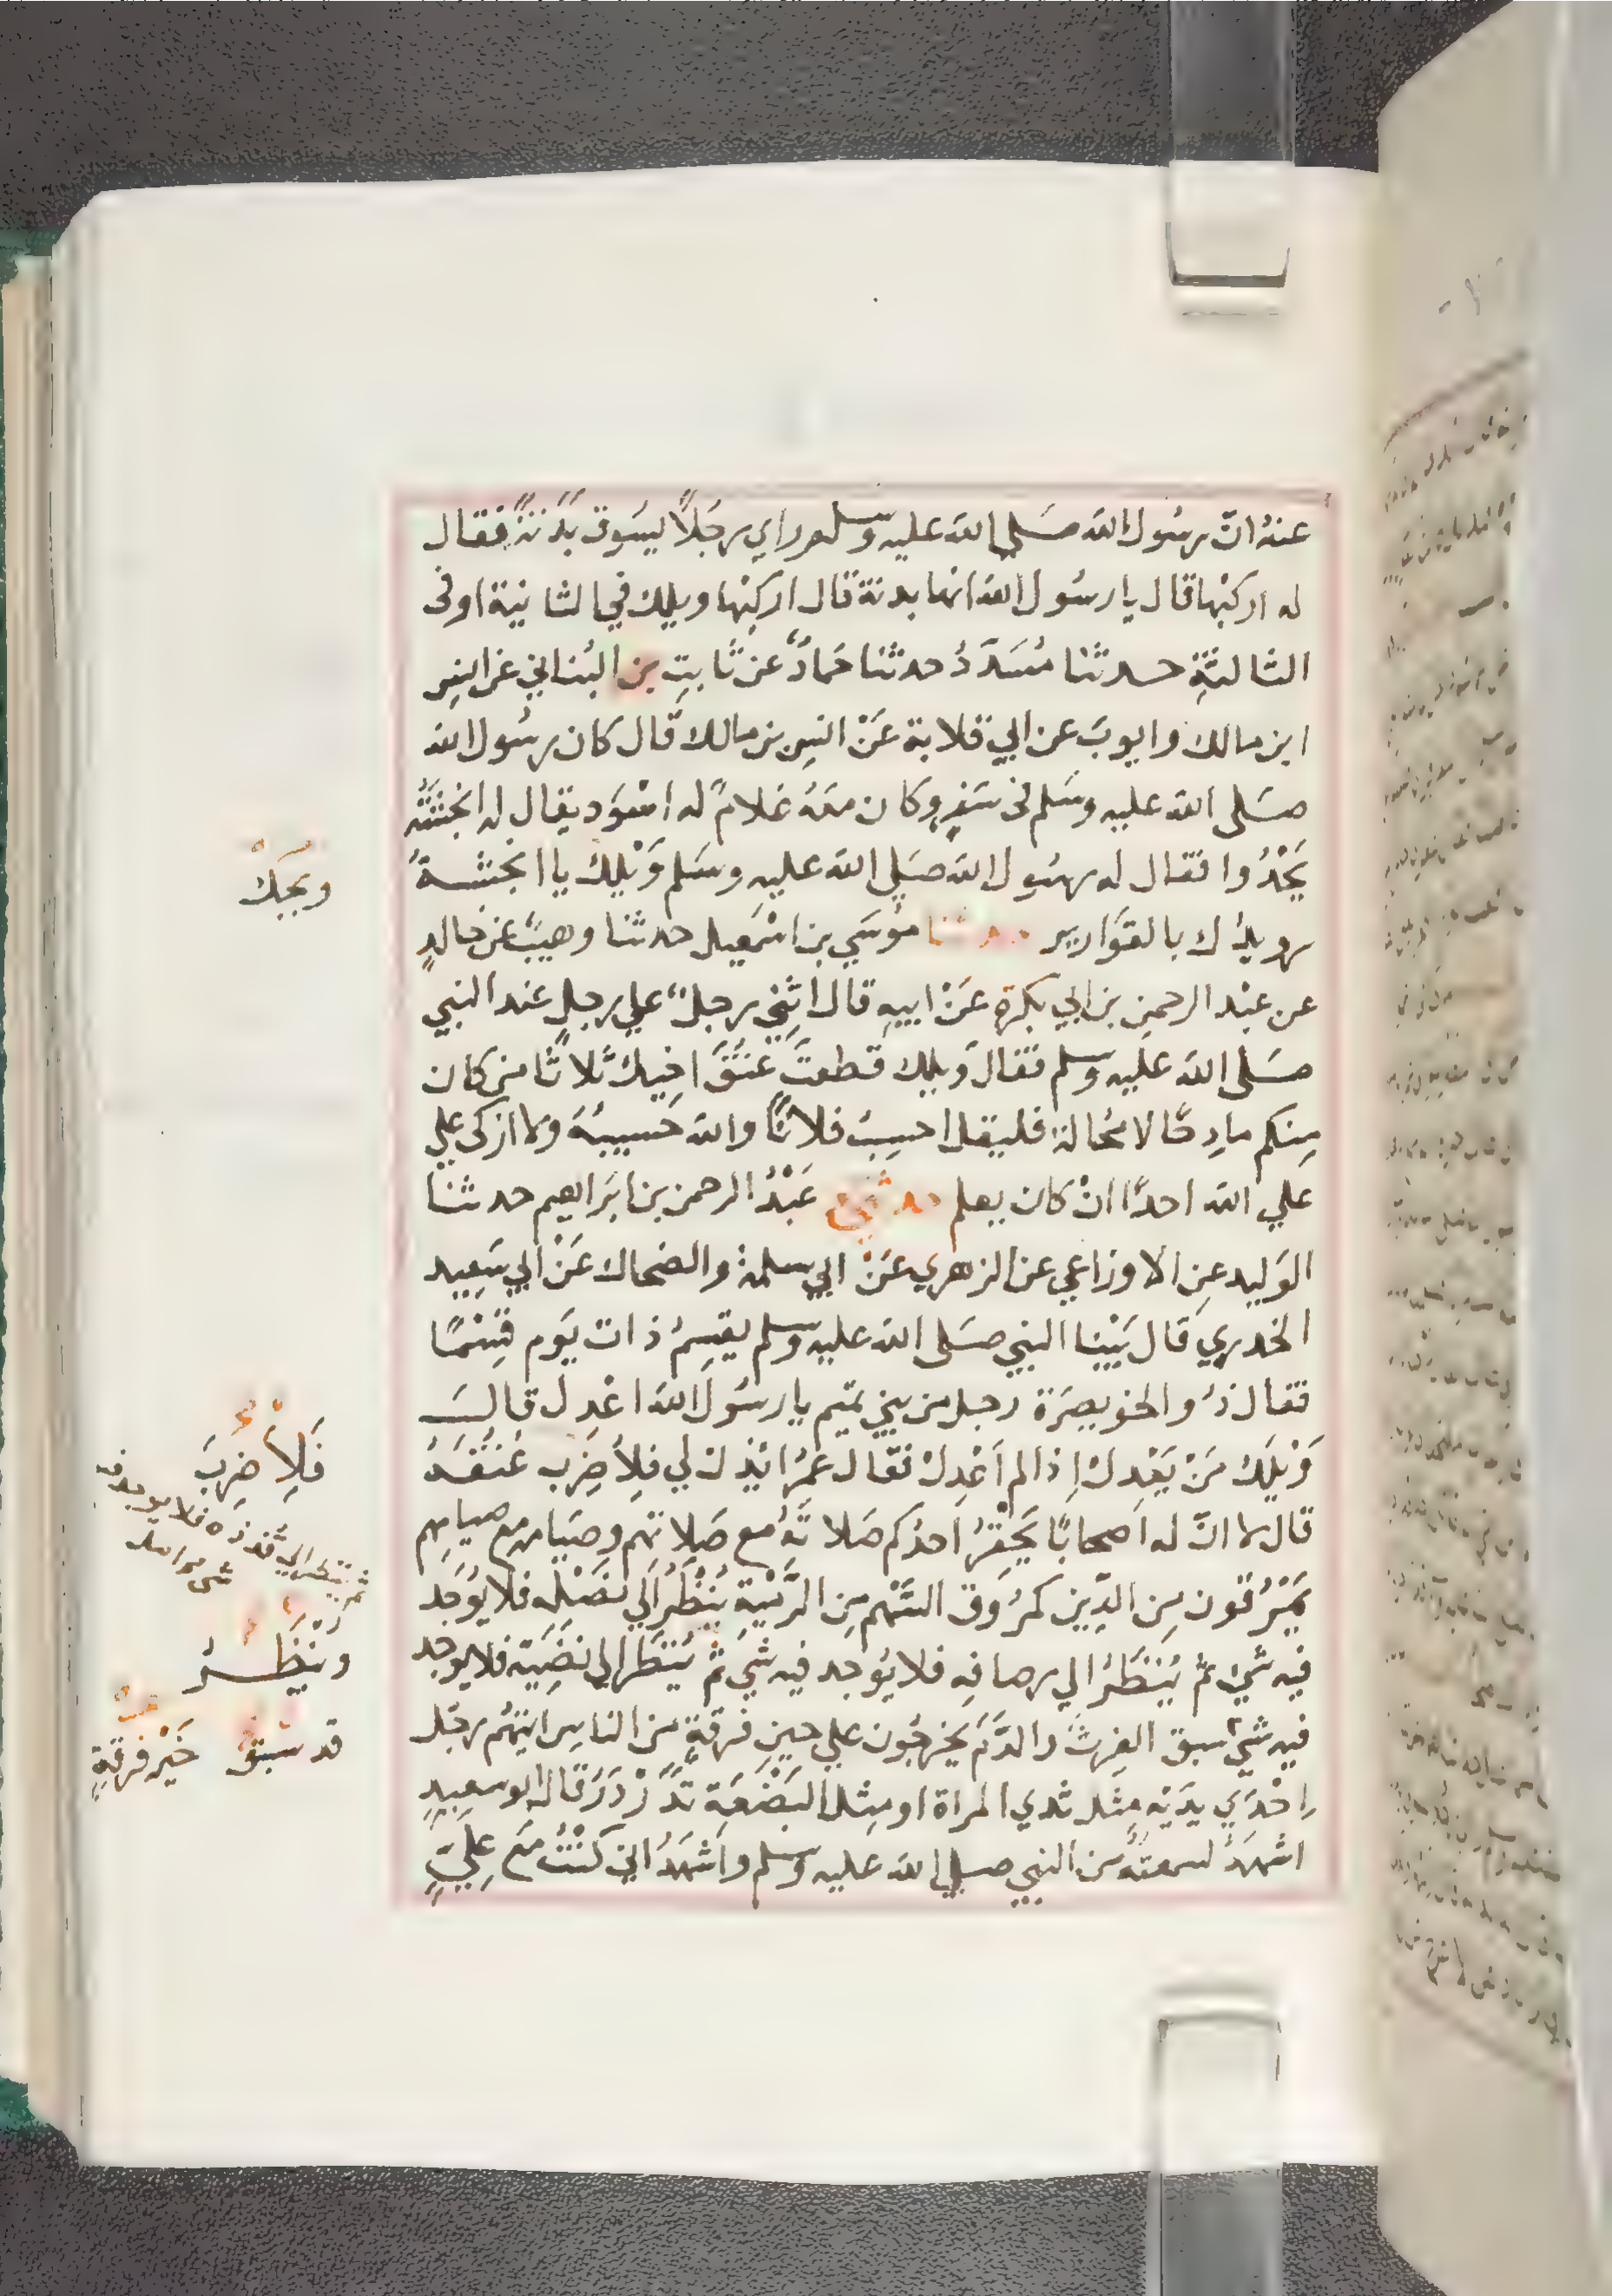 عنهُ انّ رسُول الله صَلى الله عليه وسلم راي رجُلاً يسُوق بَدَنَةً فقال
له اركبْها قال يا رسُول الله انها بدنة قال اركبْها ويلك في الثانية او في
الثالثةِ حدثنا مُسَدَّدُ حدثنا حَمادٌ عن ثابتِ بن البُناني عن انسِ
ابن مالك وايوبَ عن ابي قلابة عَنْ انسِ بن مالك قال كان رسُول الله
صَلى الله عليه وسَلم في سَفرٍ وكان معَهُ غلامٌ له اسْوَد يقال له انجَشَةُ
يَحْدُوا فقال له رسُول الله صَلى الله عليهِ وسَلم وَيْلكَ يا انجَشةُ
رويدَك بالقوَارير حدثنا موُسَي بن اسْمعيل حدثنا وهيبٌ عن خالدٍ
عن عبْد الرحمنِ بن ابي بكرة عَنْ ابيهِ قال اثنِي رجلٌ علي رجلٍ عند النبي
صَلى الله عليه وسلم فقال وَيلك قطعتَ عُنُقَ اخيكَ ثلاثًا من كان
مِنكم مادِحًا لا محُالة فليقل احسِبُ فلانًا والله حَسيبُهُ ولا ازكى علي
علي الله احدًا انْ كان يعلم حدثني عَبْدُ الرحمن بن ابرَاهيم حدثنا
الوَليد عنِ الاوزاعي عن الزهري عَنْ ابي سلمة والضحاك عَنْ ابي سَعِيد
الخدري قال بَيْنا النبي صَلى الله عليه وسلم يقسِمُ ذات يَوم قِسْمًا
فقال ذوُ الخويصِرَة رجل من بني تميم يا رسُول الله اعْدِل قال
وَيْلَكَ مَنْ يَعْدِل اِذا لم اَعْدِل فقال عمرُ ائذن لي فلِأَضِرب عُنُقَهُ
قال لا انّ له اَصحابًا يَحْقِرُ احدُكم صَلاتَهُ مع صَلاتهم وصيَامه مع صيامِهم
يَمْرُقون مِن الدِّين كمرُوق السَّهْم مِن الرَّمْيةِ يُنْظَرُ الي نصْلِه فلا يوُجَد
فيه شئ ثم يُنظَرُ الي رصافِه فلا يوُجد فيه شي ثم يُنظَر الي نضَيّه فلا يوجد
فيه شئ سبق الفرثَ والدَّمَ يخرجُون علي حينِ فرقةٍ من الناسِ ايتهُم رجُل
اِحْدَي يدَيْه مِثل ثدي المراة او مِثل البَضْعَة تَدَرْدَرُ قال ابو سعيدٍ
اشهَدُ لسمعتُه من النبي صلي الله عليه وسلم واَشهَدُ اني كُنْتُ مَع عليٍّ
ويحَكْ
فَلِأَضْرِبَ
ثم ينظر الي قذذه فلا يوجد فيه
شي
وينظُرُ
قد سَبَق خَيْر فرقةٍ